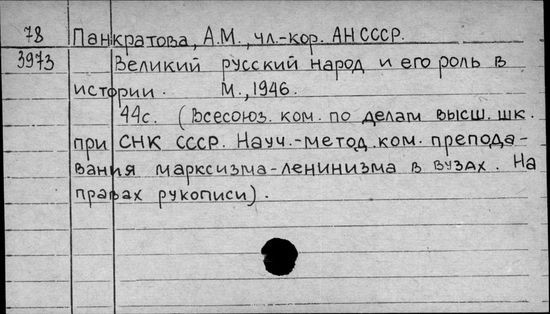 78 Панкратова, А.М., чл.-кор. АН СССР.
3973 Великий русский народ и его роль в
истории. М., 1946.
44с. (Всесоюз. ком. по делам высш. шк.
при СНК СССР. Науч.-метод. ком. препода-
вания марксизма-ленинизма в вузах. На
правах рукописи).